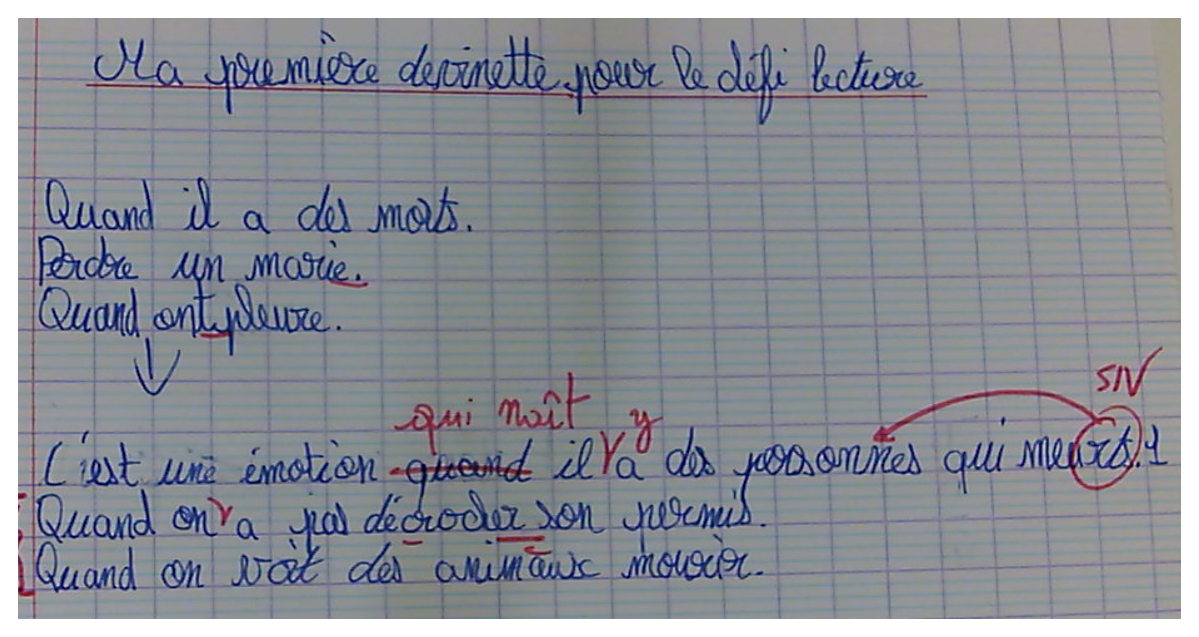 Ma première devinette pour le défi lecture
Quand il a des morts.
Perdre un marie.
Quand ont pleure.
SIV
qui naît y
C'est une émotion quand il a des personnes qui meurts.1
Quand on a pas décrocher son permis.
Quand on voit des animaux mourir.